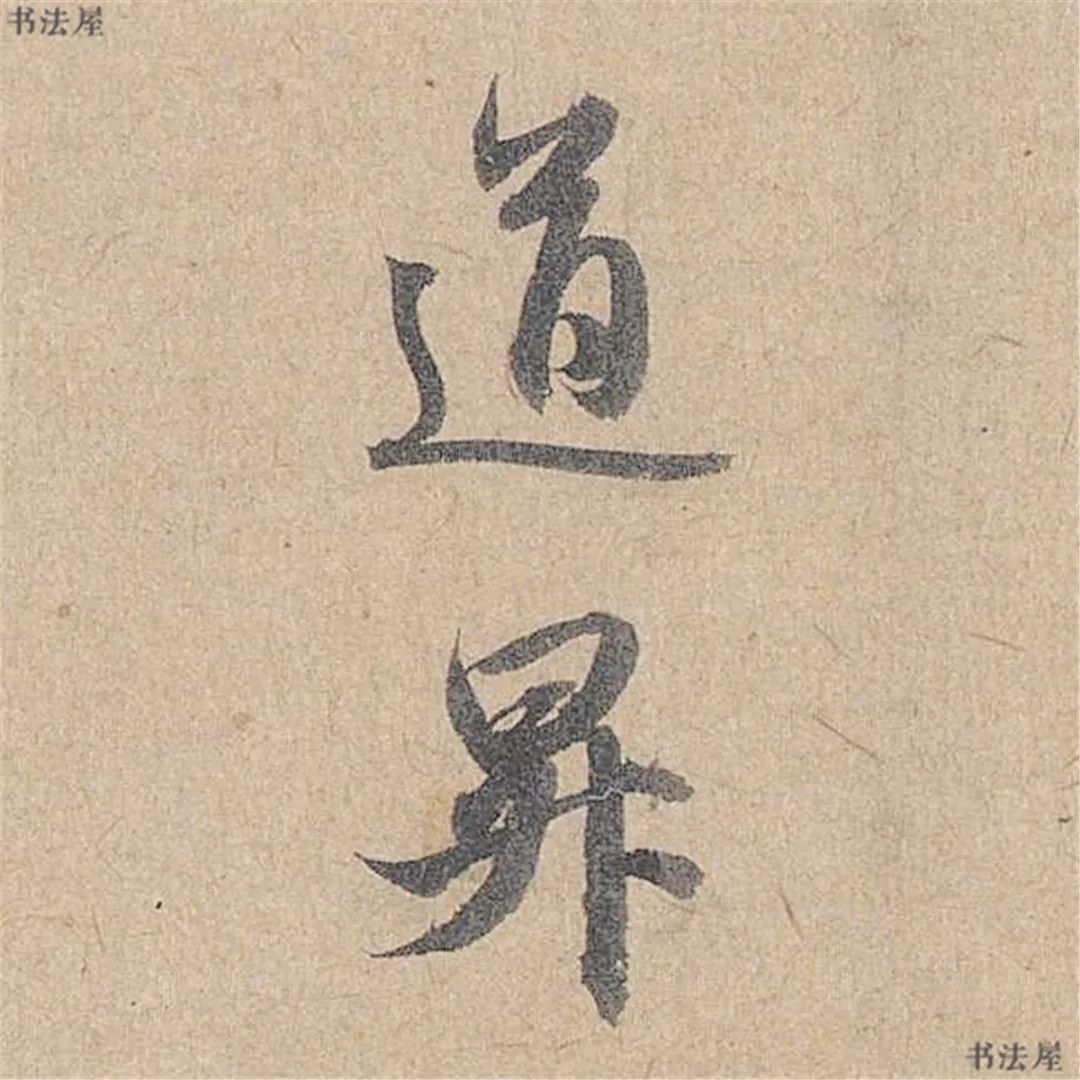 书法屋
道
昇
书法屋